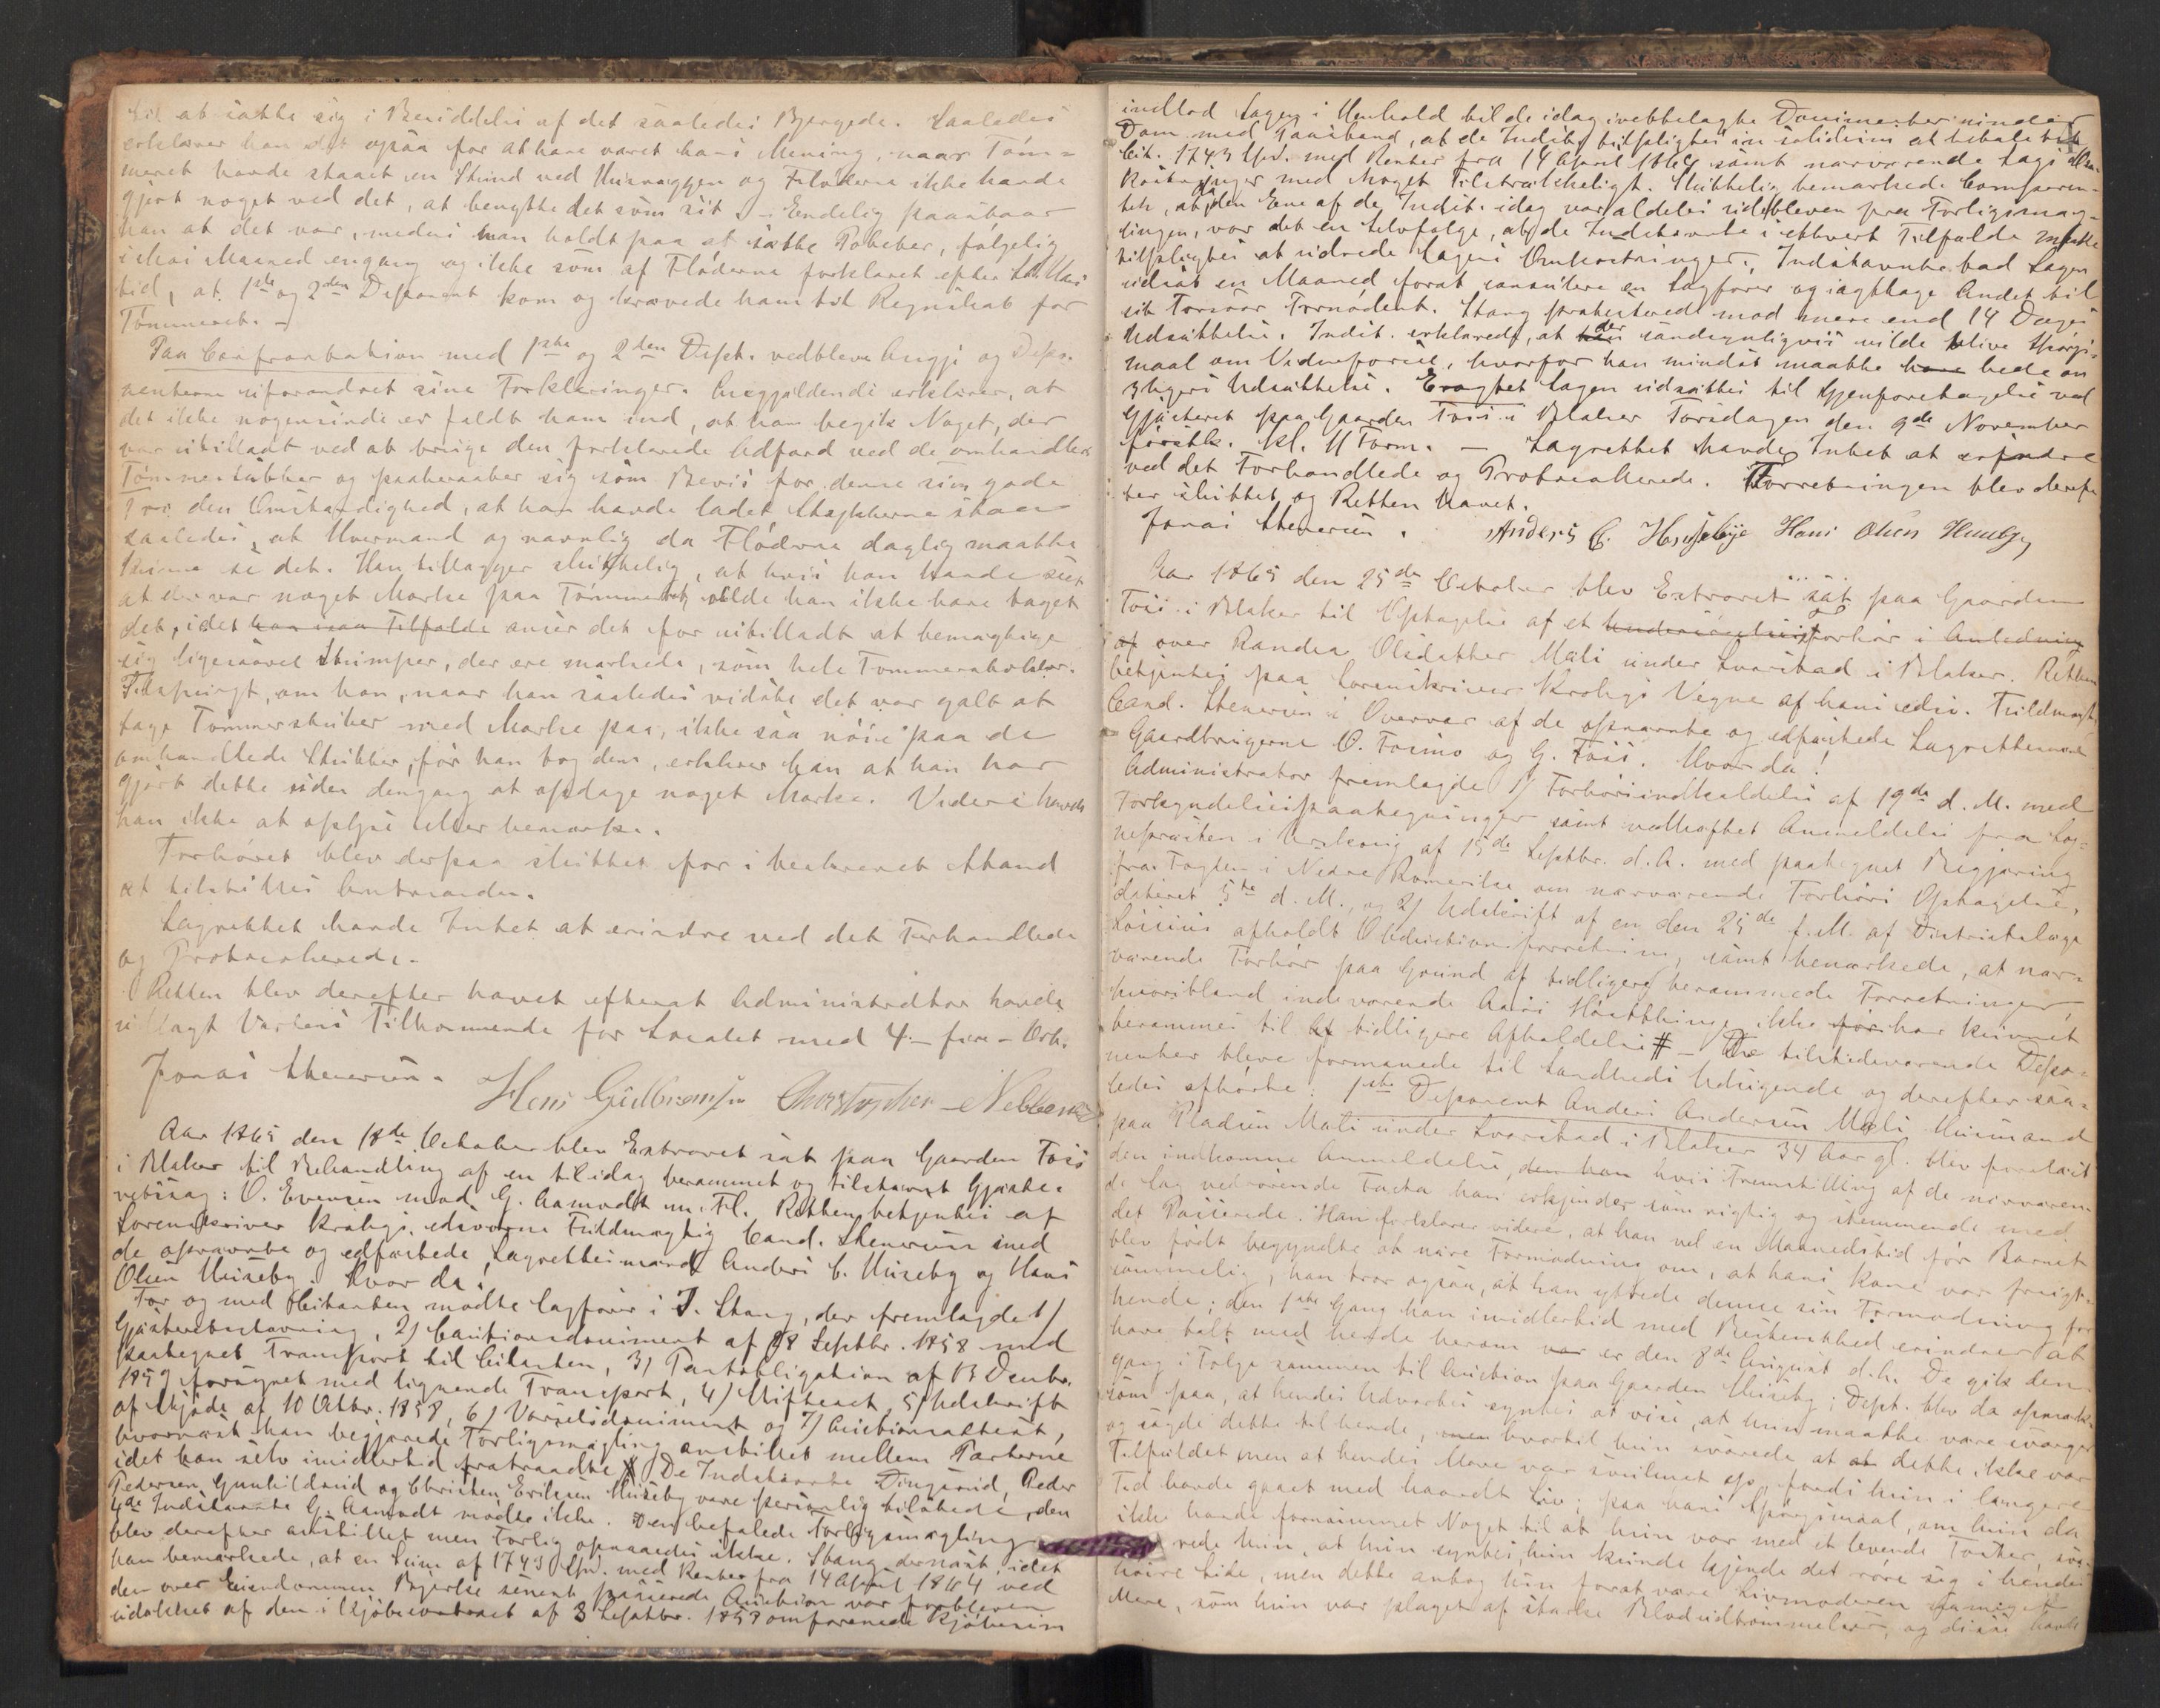 til at sætte sig i Besiddelse af det saaledes Bjergede. Saaledes
erklærer han det ogsaa for at have været hans Mening, naar Tøm-
meret havde staaet en Stund ved Husvæggen og Fløderne ikke havde
gjort noget ved det, at benytte det som sit. – Endelig paastaar
han at det var, medens man holdt paa at sætte Poteter, følgelig
i Mai Maaned engang og ikke som af Fløderne forklaret efter St. Hans
tid, at 1ste og 2den Deponent kom og krævede ham til Regnskab for
Tømmeret. –
Paa Confrontation med 1ste og 2den Dept. vedbleve Angjs og Depo-
nenterne uforandret sine Forklaringer. Angjældende erklærer, at
det ikke nogensinde er faldt ham ind, at han begik Noget, der
var utilladt ved at bruge den forklarede Adfærd ved de omhandlede
Tømmerstubber og paaberaaber sig som Bevis for denne sin gode
Tro den Omstændighed, at han havde ladet Stykkerne staae
saaledes, at Hvermand og navnlig da Fløderne daglig maatte
kunne se det. Han tillægger sluttelig, at hvis han havde seet
at der var noget Mærke paa Tømmeret, vilde han ikke have taget
det, idet han saa Tilfælde anser det for utilladt at bemægtige
sig ligesaavel Stumper, der ere mærkede, som hele Tømmerstokker.
Tilspurgt, om han, naar han saaledes vidste det var galt at
tage Tømmerstubber med Mærke paa, ikke saa nøie paa de
omhandlede Stubber, før han tog dem, erklærer han at han har
gjort dette uden dengang at opdage noget Mærke. Videre havde
han ikke at oplyse eller bemærke.
Forhøret blev derpaa sluttet for i beskrevet Stand
at tilstilles Amtmanden.
Lagrettet havde Intet at erindre ved det Forhandlede
og Protocollerede. –
Retten blev derefter hævet efterat Administrator havde
udlagt Værtens Tilkommende for Localet med 4 – fire – Ort.
Jonas Stenersen. Hans Gulbrandsen Christopher Nebbenæs
Aar 1865 den 18de October blev Extraret sat paa Gaarden Foss
i Blaker til Behandling af en til idag berammet og tilstævnt Gjæste-
retssag: O. Evensen mod G. Aamodt m. Fl. Retten betjentes af
Sorenskriver Kroghs edsvorne Fuldmægtig Cand. Stenersen med
de opnævnte og edfæstede Lagrettesmænd Anders C. Huseby og Hans
Olsen Huseby. Hvor da:
For og med Citanten mødte Sagfører i J. Stang, der fremlagde 1/
Gjæsteretsstævning, 2/ Cautionsdocument af 18 Septbr. 1858 med
paategnet Transport til Citanten, 3/ Pantobligation af 13 Decbr.
1859 forsynet med lignende Transport, 4/ Skifteact, 5/ Udskrift
af Skjøde af 10 Octbr. 1858, 6/ Varselsdocument og 7/ Auctionsattest,
hvornæst han begjærede Forligsmægling anstillet mellem Parterne
idet han selv imidlertid fratraadte. De Indstævnte Dingsrud, Peder
Pedersen Gunhildsrud og Christen Eriksen Huseby vare personlig tilstede, den
4de Indstævnte G. Aamodt mødte ikke. Den befalede Forligsmægling
blev derefter anstillet men Forlig opnaaedes ikke. Stang dernæst, idet
han bemærkede, at en Sum af 1743 Spd. med Renter fra 14 April 1864 ved
den over Eiendommen Bjerke senest passerede Auction var forbleven
udækket af den i Kjøbecontract af 3 Septbr. 1858 omforenede Kjøbesum
indlod Sagen i Henhold til de idag irettelagte Documenter under
Dom med Paastand, at de Indstv. tilpligtes in solidum at betale til
Cit. 1743 Spd. med Renter fra 14 April 1864 samt nærværende Sags Om-
kostninger med Noget Tilstrækkeligt. Sluttelig bemærkede Comparen-
ten, at da den Ene af de Indst. idag var aldeles udebleven fra Forligsmæg-
lingen, var det en Selvfølge, at de Indstævnte i ethvert Tilfælde maatte
tilpligtes at udrede Sagens Omkostninger. Indstævnte bad Sagen
udsat en Maaned forat consulere en Sagfører og iagttage Andet til
sit Forsvar Fornødent. Stang protesterede mod mere end 14 Dages
Udsættelse. Indst. erklærede, at der sandsynligvis vilde blive Spørgs-
maal om Vidneførsel, hvorfor han mindst maatte bede om
3 Ugers Udsættelse. Eragtet Sagen udsættes til Gjenforetagelse ved
Gjæsteret paa Gaarden Foss i Blaker Torsdagen den 9de November
førstk. Kl. 11 Form. – Lagrettet havde Intet at erindre
ved det Forhandlede og Protocollerede. Forretningen blev deref-
ter sluttet og Retten hævet.
Jonas Stenersen. Anders C. Huseby Hans Olsen Huseby
Aar 1865 den 25de October blev Extraret sat paa Gaarden
Foss i Blaker til Optagelse af et Undersøgelsesforhør i Anledning
af over Randea Olsdatter Mali under Svarstad i Blaker. Retten
betjentes paa Sorenskriver Kroghs Vegne af hans edsv. Fuldmægt.
Cand. Stenersen i Overvær af de opnævnte og edfæstede Lagrettemænd
Gaardbrugerne O. Fosmo og G. Foss. Hvor da:
Administrator fremlagde 1/ Forhørsindkaldelse af 19de d. M. med
Forkyndelsespaategninger samt vedheftet Anmeldelse fra Sog-
nepræsten i Urskoug af 15de Septbr. d. A. med paategnet Begjæring
fra Fogden i Nedre Romerike om nærværende Forhørs Optagelse,
dateret 5te d. M., og 2/ Udskrift af en den 25de f. M. af Districtslæge
Lossius afholdt Obductionsforretning, samt bemærkede, at nær-
værende Forhør paa Grund af tidligere berammede Forretninger,
hvoribland indeværende Aars Høstthinge, ikke før har kunnet
berammes til tidligere Afholdelse # – De tilstedeværende Depo-
nenter bleve formanede til Sandheds Udsigende og derefter saa-
ledes afhørte: 1ste Deponent Anders Andersen Mali Husmand
paa Pladsen Mali under Svarstad i Blaker 34 Aar gl. blev forelæst
den indkomne Anmeldelse, den han hvis Fremstilling af de nærværen-
de Sag vedrørende Facta han erkjender som rigtig og stemmende med
det Passerede. Han forklarer videre, at han vel en Maanedstid før Barnet
blev født begyndte at nære Formodning om, at hans Kone var frugt-
sommelig, han tror ogsaa, at han yttrede denne sin Formodning for
hende; den 1ste Gang han imidlertid med Bestemthed erindrer at
have talt med hende herom var er den 8de August d. A. De gik den-
gang i Følge sammen til Auction paa Gaarden Huseby; Dept. blev da opmærk-
som paa, at hendes Udvortes syntes at vise, at hun maatte være svanger
og sagde dette til hende, men hvortil hun svarede at at dette ikke var
Tilfældet men at hendes Mave var svulmet op, fordi hun i længere
Tid havde gaaet med haardt Liv; paa hans Spørgsmaal, om hun da
ikke havde fornummet Noget til at hun var med et levende Foster, sva-
rede hun, at hun syntes, hun kunde kjende det røre sig i hendes
høire Side, men dette antog hun forat være Livmoderen
Mere, som hun var plaget af stærke Blodudtømmelser, og disse havde